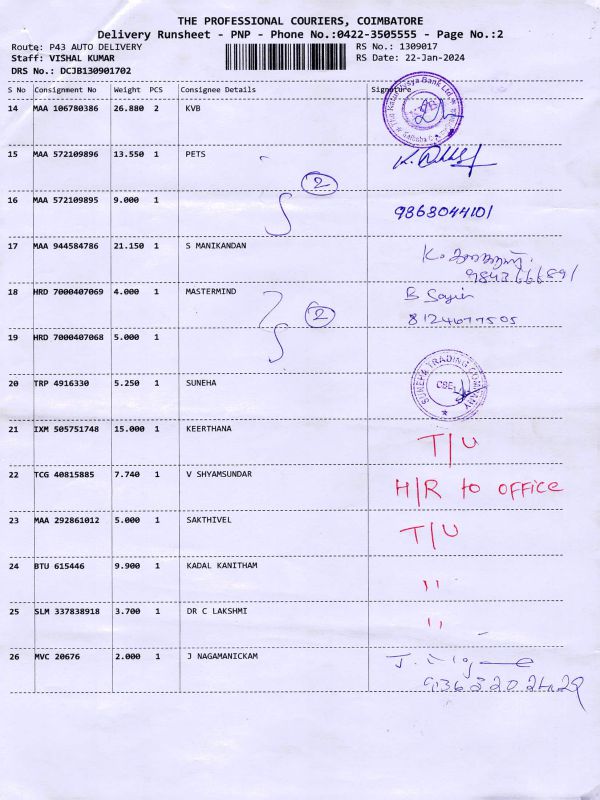 THE PROFESSIONAL COURIERS, COIMBATORE
Delivery Runsheet - PNP - Phone No.:0422-3505555 - Page No.:2
Route: P43 AUTO DELIVERY RS No.: 1309017
Staff: VISHAL KUMAR RS Date: 22-Jan-2024
DRS No.: DCJB130901702
S No Consignment No Weight PCS Consignee Details Signature
14 MAA 106780386 26.880 2 KVB
15 MAA 572109896 13.550 1 PETS
2
16 MAA 572109895 9.000 1 9863044101
17 MAA 944584786 21.150 1 S MANIKANDAN
9843666891
18 HRD 7000407069 4.000 1 MASTERMIND B
2 8124677505
19 HRD 7000407068 5.000 1
20 TRP 4916330 5.250 1 SUNEHA
SUNEHA TRADING COMPANY
CBE
21 IXM 505751748 15.000 1 KEERTHANA T/U
22 TCG 40815885 7.740 1 V SHYAMSUNDAR H/R to OFFICE
23 MAA 292861012 5.000 1 SAKTHIVEL T/U
24 BTU 615446 9.900 1 KADAL KANITHAM "
25 SLM 337838918 3.700 1 DR C LAKSHMI "
26 MVC 20676 2.000 1 J NAGAMANICKAM